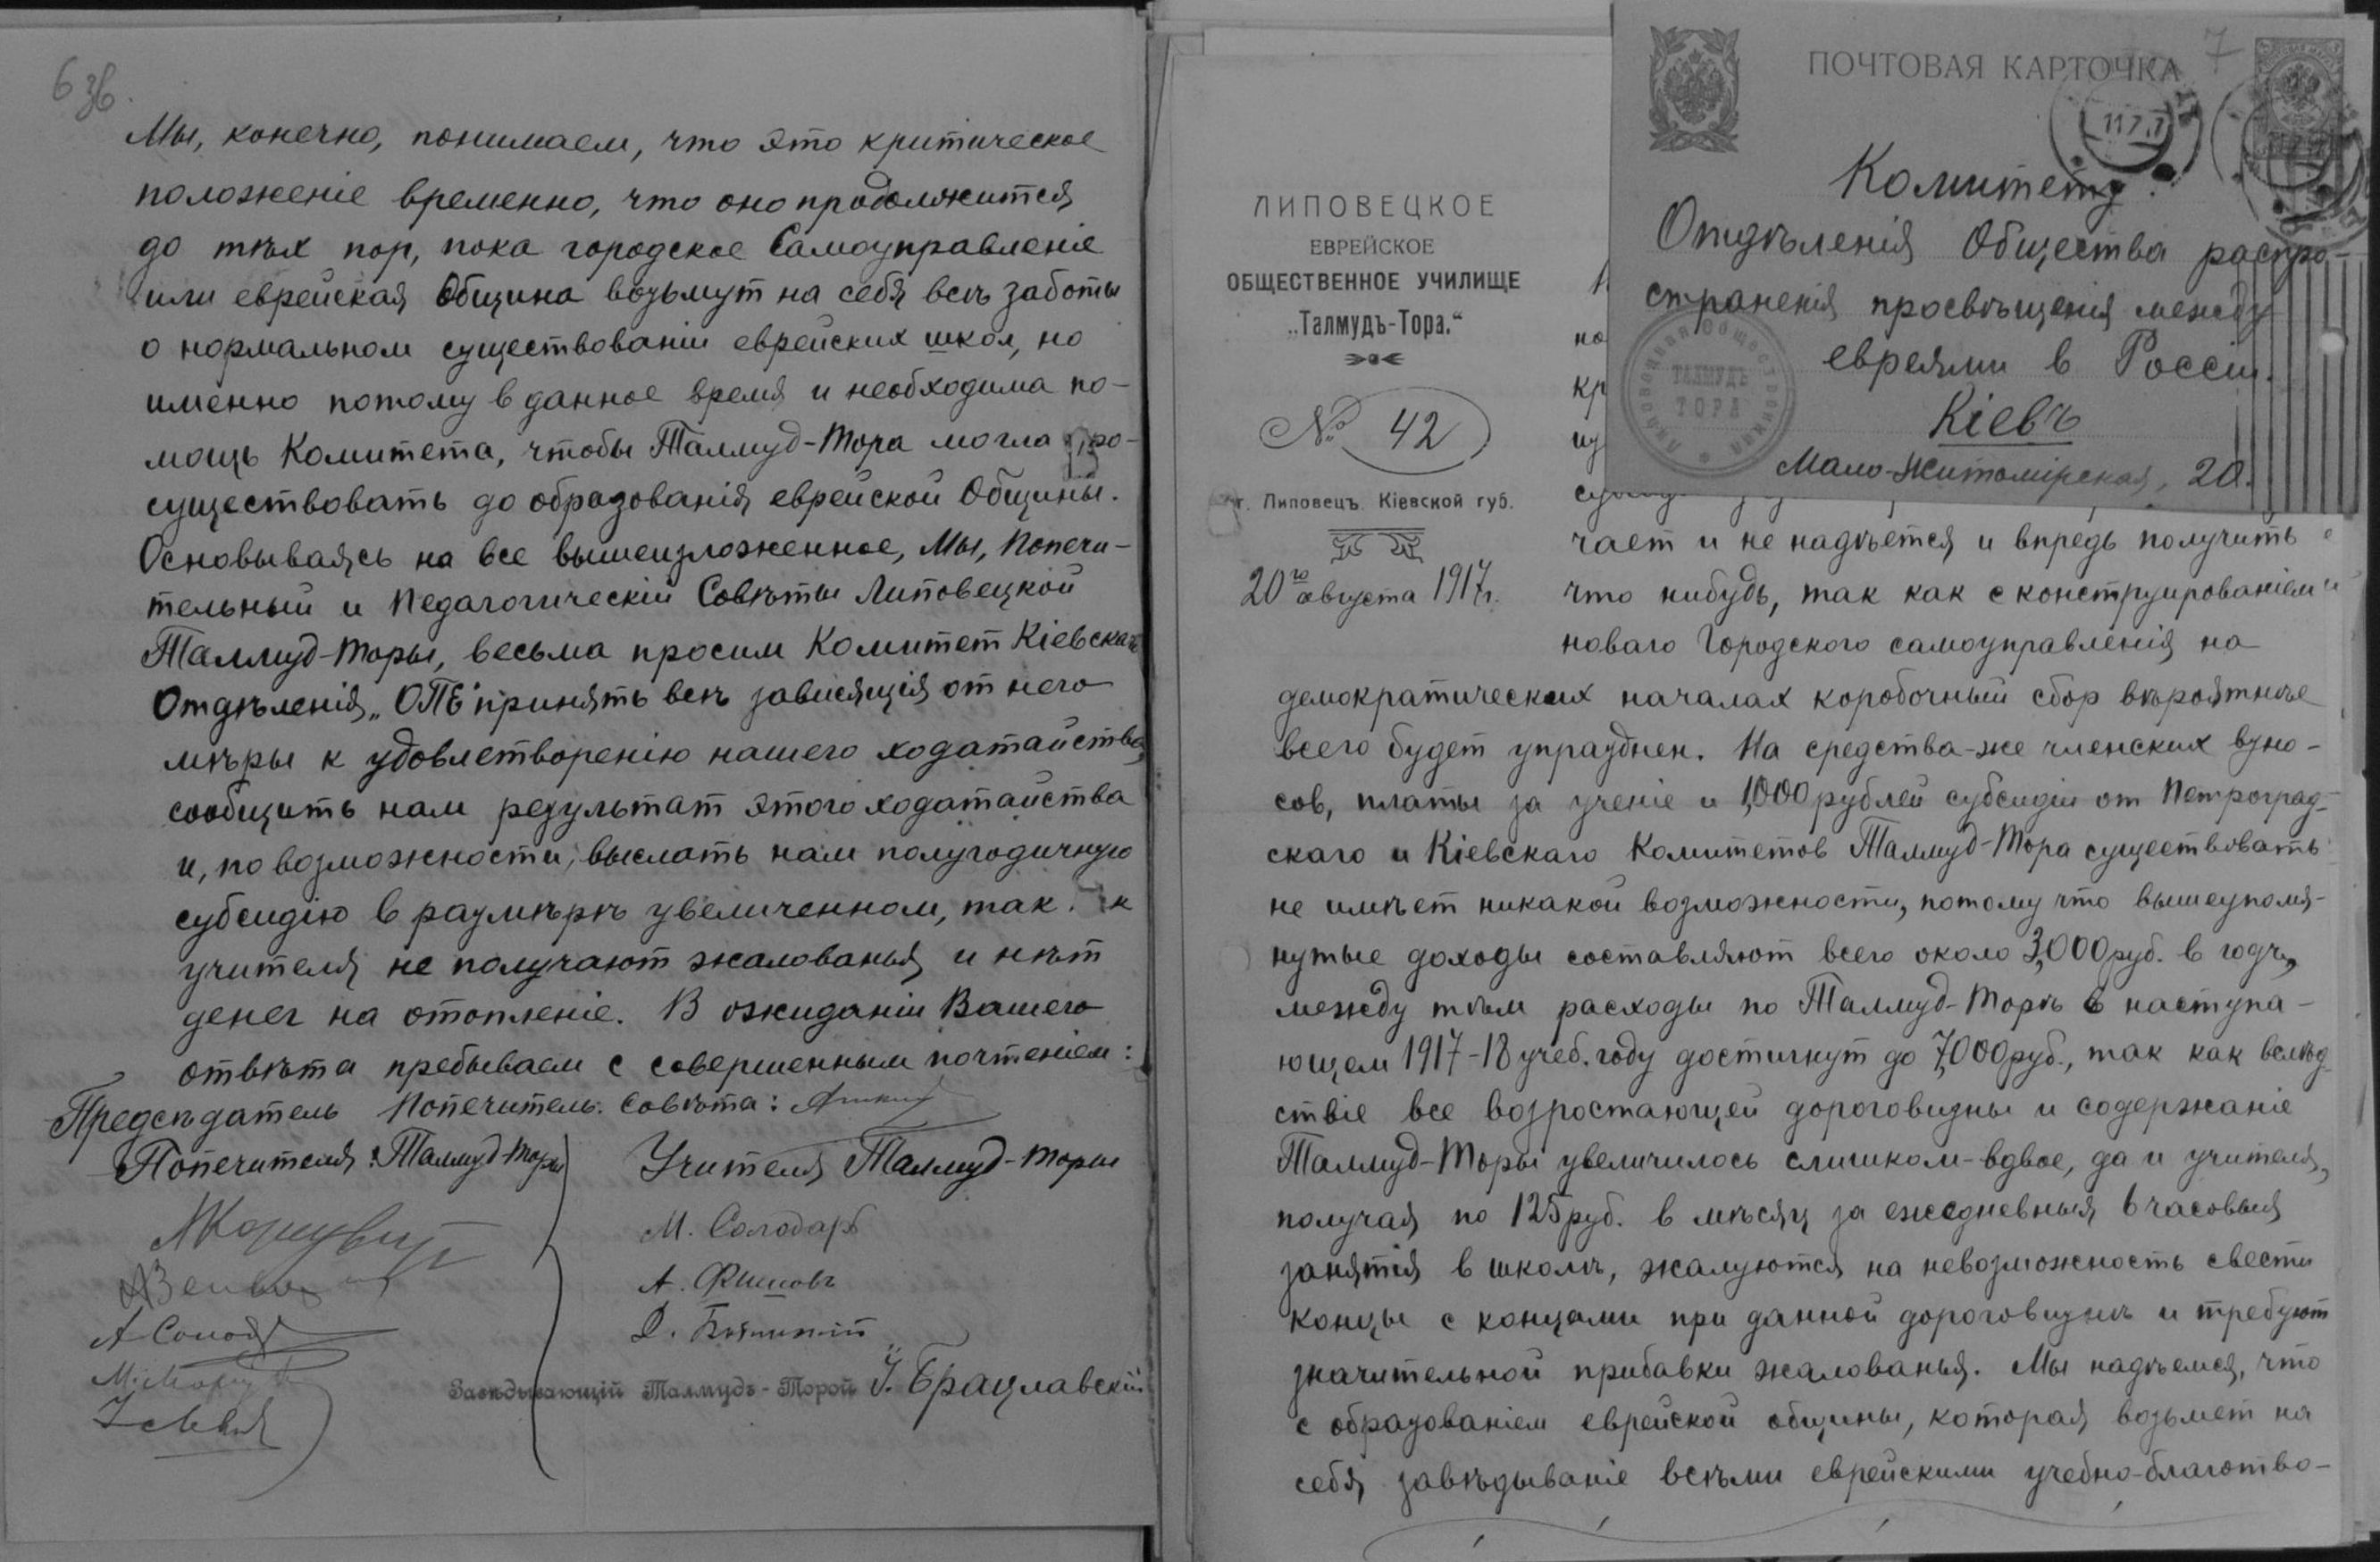 6 зв.
Мы, конечно, понимаем, что это критическое
положеніе временно, что оно продолжится
до тѣх пор, пока городское Самоуправленіе
или еврейская Община возьмут на себя всѣ заботы
о нормальном существованіи еврейских школ, но
именно потому в данное время и необходима по-
мощь Комитета, чтобы Талмуд-Тора могла про-
существовать до образованія еврейской Общины.
Основываясь на все вышеизложенное, Мы, Попечи-
тельный и Педагогическій Совѣты Липовецкой
Талмуд-Торы, весьма просим Комитет Кіевскаго
Отдѣленія „ОПЕ" принять всѣ зависящія от него
мѣры к удовлетворенію нашего ходатайства,
сообщить нам результат этого ходатайства
и, по возможности, выслать нам полугодичную
субсидію в размѣрѣ увеличенном, так к
учителя не получают жалованья и нѣт
денег на отопленіе. В ожиданіи Вашего
отвѣта пребываем с совершенным почтеніем:
Предсѣдатель Попечитель. Совѣта:
Попечителя: Талмуд-Торы
Учителя Талмуд-Торы
М. Солодарь
А.
Д.
Завѣдывающій Талмудъ-Торой І. Брацлавскій
7
ПОЧТОВАЯ КАРТОЧКА
Комитету
Отдѣленія Общества распро-
страненія просвѣщенія между
евреями в Россіи.
Кіевъ
Мало-Житомірская, 20.
ТАЛМУДЪ
ТОРА
ЛИПОВЕЦКОЕ
ЕВРЕЙСКОЕ
ОБЩЕСТВЕННОЕ УЧИЛИЩЕ
„Талмудъ-Тора.“
№ 42
г. Липовецъ, Кіевской губ.
20го августа 1917г.
но
кр
из
чает и не надѣется и впредь получить
что нибудь, так как с конструированіем
новаго Городского самоуправленія на
демократических началах коробочный сбор вѣроятнѣе
всего будет упразднен. На средства-же членских взно-
сов, платы за ученіе и 1,000 рублей субсидіи от Петроград-
скаго и Кіевскаго Комитетов Талмуд-Тора существовать
не имѣет никакой возможности, потому что вышеупомя-
нутые доходы составляют всего около 3,000 руб. в годъ,
между тѣм расходы по Талмуд-Торѣ в наступа-
ющем 1917-18 учеб. году достигнут до 7,000 руб., так как вслѣд-
ствіе все возростающей дороговизны и содержаніе
Талмуд-Торы увеличилось слишком-вдвое, да и учителя,
получая по 125 руб. в мѣсяц за ежедневныя 6 часовыя
занятія в школѣ, жалуются на невозможность свести
концы с концами при данной дороговизнѣ и требуют
значительной прибавки жалованья. Мы надѣемся, что
с образованіем еврейской общины, которая возьмет на
себя завѣдываніе всѣми еврейскими учебно-благотво-